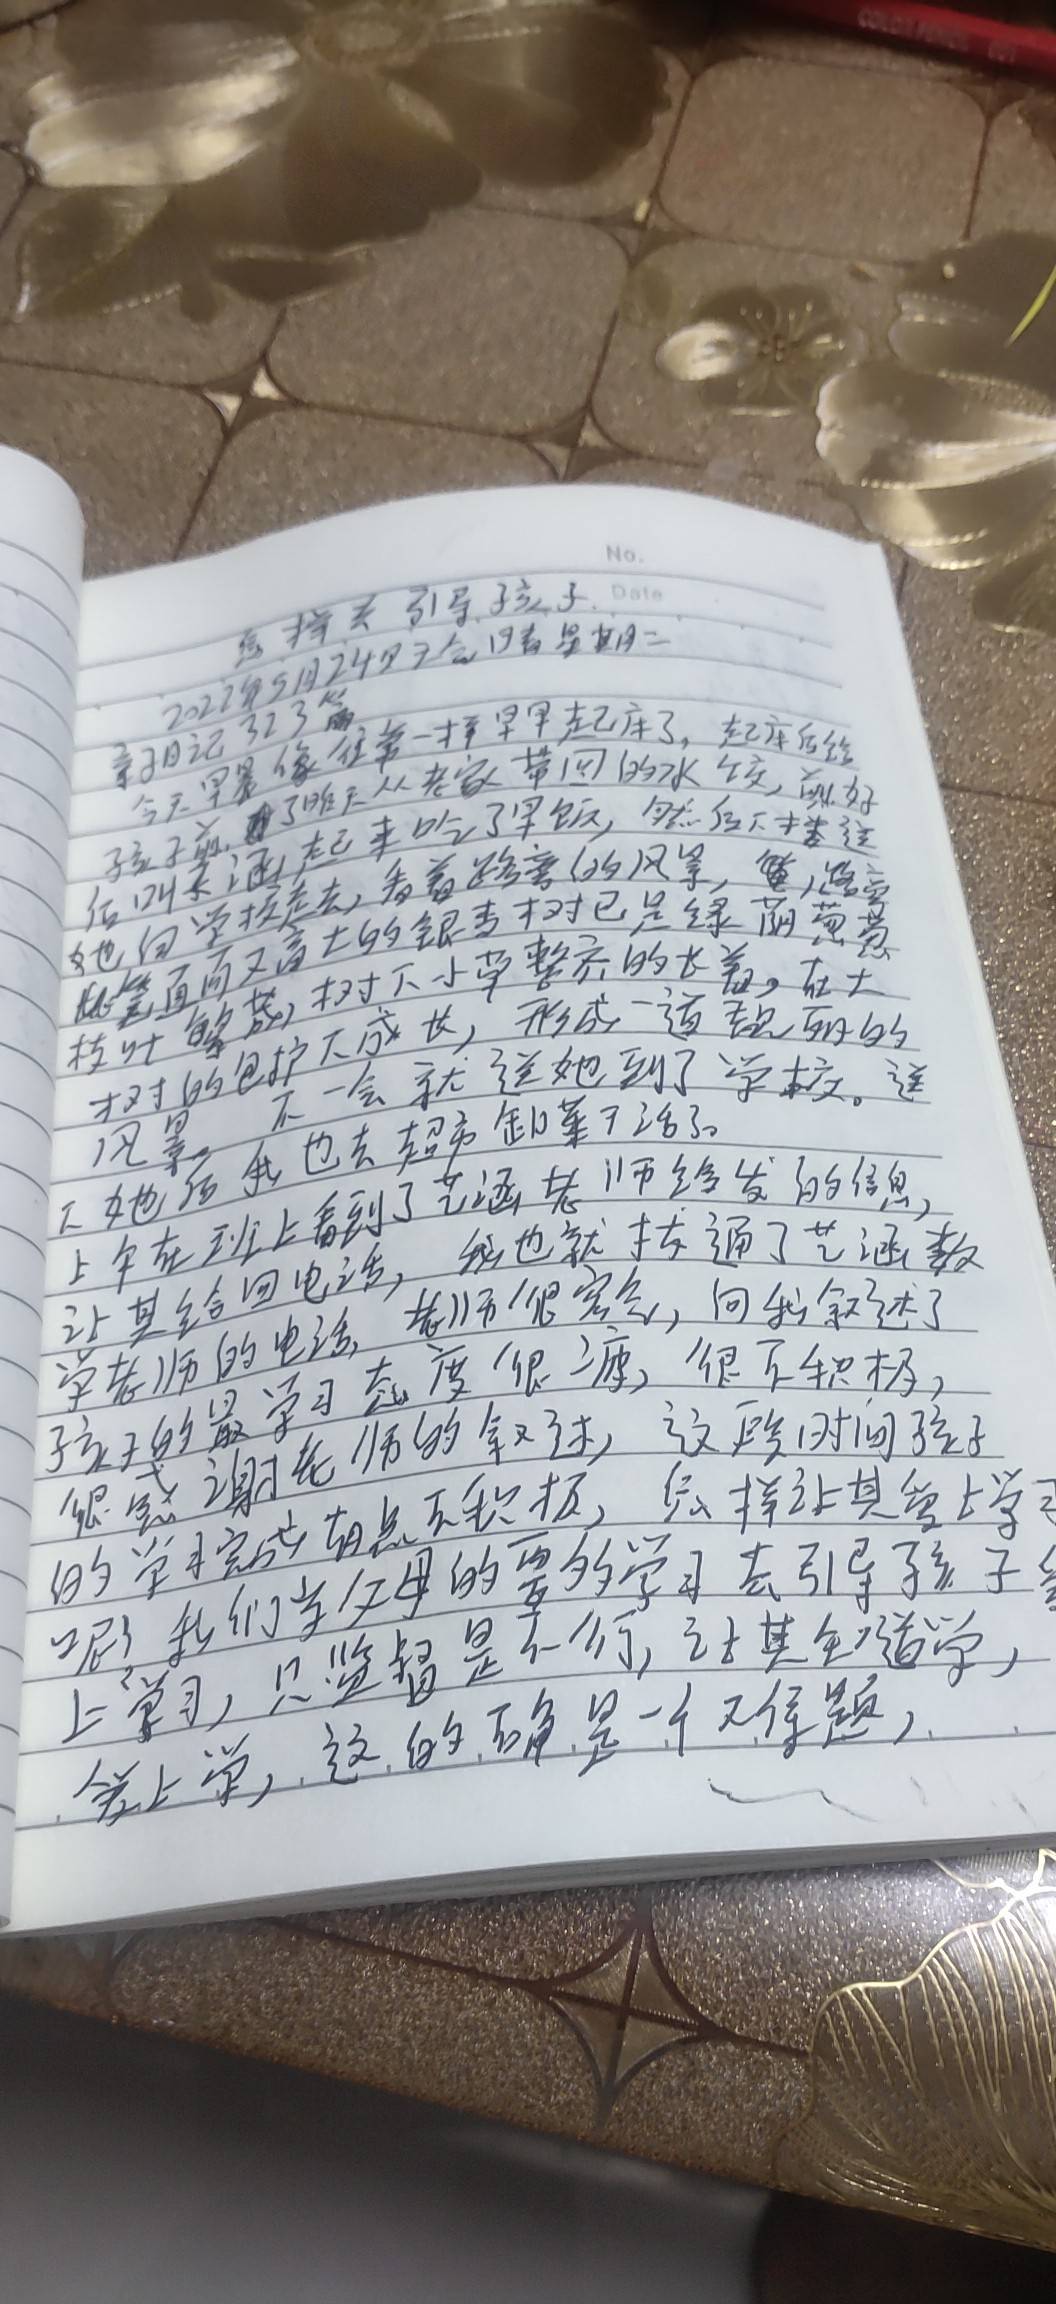 COLOR PENCIL
No.
Date
怎样去引导孩子
2022年5月24日 天气 星期二
亲子日记323篇
今天早晨像往常一样早早起床了,起床后给
孩子煎了昨天从老家带回的水饺,煎好
后叫艺涵起来吃了早饭,然后下楼送
她向学校走去,看着路旁的风景,路旁
笔直而又高大的银杏树已是绿荫葱葱
枝叶繁茂,树下小草整齐的长着。在大
树的包护下成长,形成一道靓丽的
风景。不一会就送她到了学校。送
下她后我也去超市卸菜干活了。
上午在班上看到了艺涵老师给发的信息,
让其给回电话,我也就拨通了艺涵数
学老师的电话,老师很客气,向我叙述了
孩子的最学习态度很 ,很不积极,
很感谢老师的叙述,这段时间孩子
的学习完成有点不积极,怎样让其爱上学习
呢?我们当父母的要多学习去引导孩子爱
上学习,只监督是不行,让其知道学,
爱上学,这的确是一个难题,